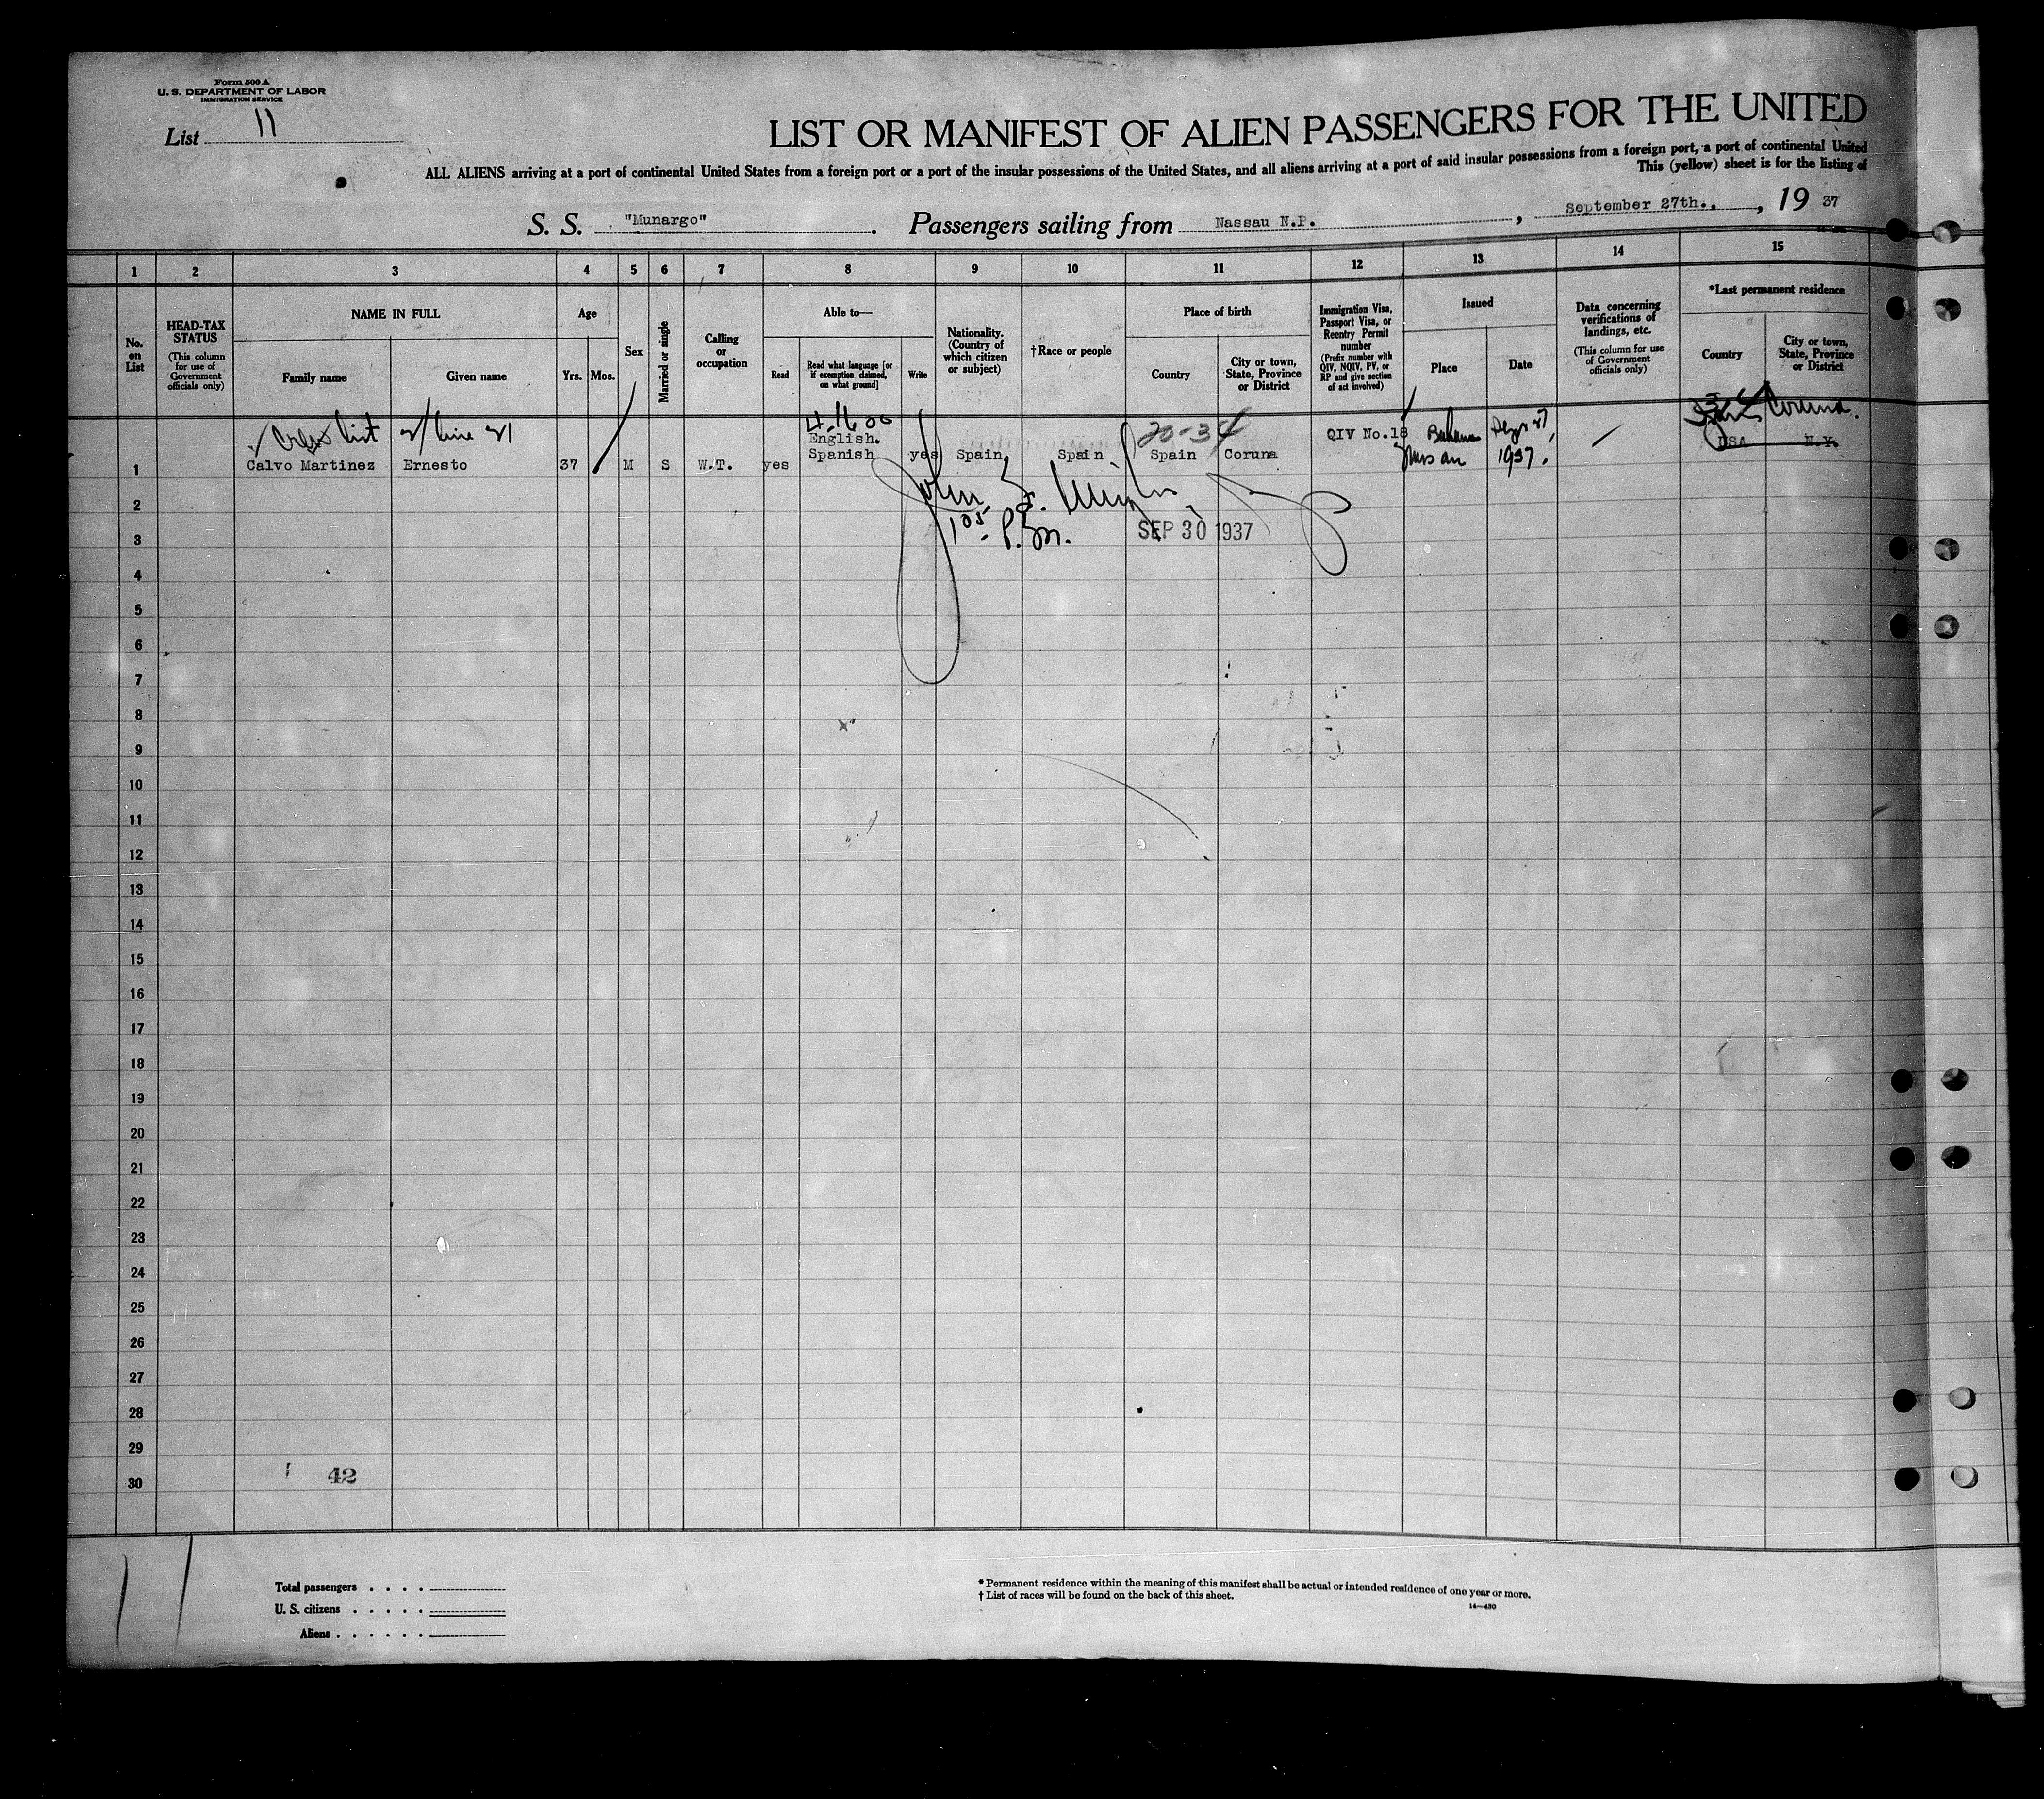 Form 500 A
U. S. DEPARTMENT OF LABOR
IMMIGRATION SERVICE
List 11
LIST OR MANIFEST OF ALIEN PASSENGERS FOR THE UNITED
ALL ALIENS arriving at a port of continental United States from a foreign port or a port of the insular possessions of the United States, and all aliens arriving at a port of said insular possessions from a foreign port, a port of continental United
This (yellow) sheet is for the listing of
S. S. "Munargo". Passengers sailing from Nassau N.P. , September 27th.. , 19 37
1 2 3 4 5 6 7 8 9 10 11 12 13 14 15
No. on List
HEAD-TAX STATUS
(This column for use of Government officials only)
NAME IN FULL
Family name
Given name
Age
Yrs. Mos.
Sex
Married or single
Calling or occupation
Able to—
Read
Read what language [or if exemption claimed, on what ground]
Write
Nationality. (Country of which citizen or subject)
†Race or people
Place of birth
Country
City or town, State, Province or District
Immigration Visa, Passport Visa, or Reentry Permit number
(Prefix number with QIV, NQIV, PV, or RP and give section of act involved)
Issued
Place
Date
Data concerning verifications of landings, etc.
(This column for use of Government officials only)
*Last permanent residence
Country
City or town, State, Province or District
list 2/ line 21
20-34
Coruna.
English.
QIV No.18
Bahamas
1 Calvo Martinez Ernesto 37 M S W.T. yes Spanish yes Spain Spain Spain Coruna Nassau 1937. USA N.Y.
2
John
3 1 05 P.M. SEP 30 1937
4
5
6
7
8
9
10
11
12
13
14
15
16
17
18
19
20
21
22
23
24
25
26
27
28
29
30
42
Total passengers . . . .
U. S. citizens . . . . .
Aliens . . . . . .
* Permanent residence within the meaning of this manifest shall be actual or intended residence of one year or more.
† List of races will be found on the back of this sheet.
14—430